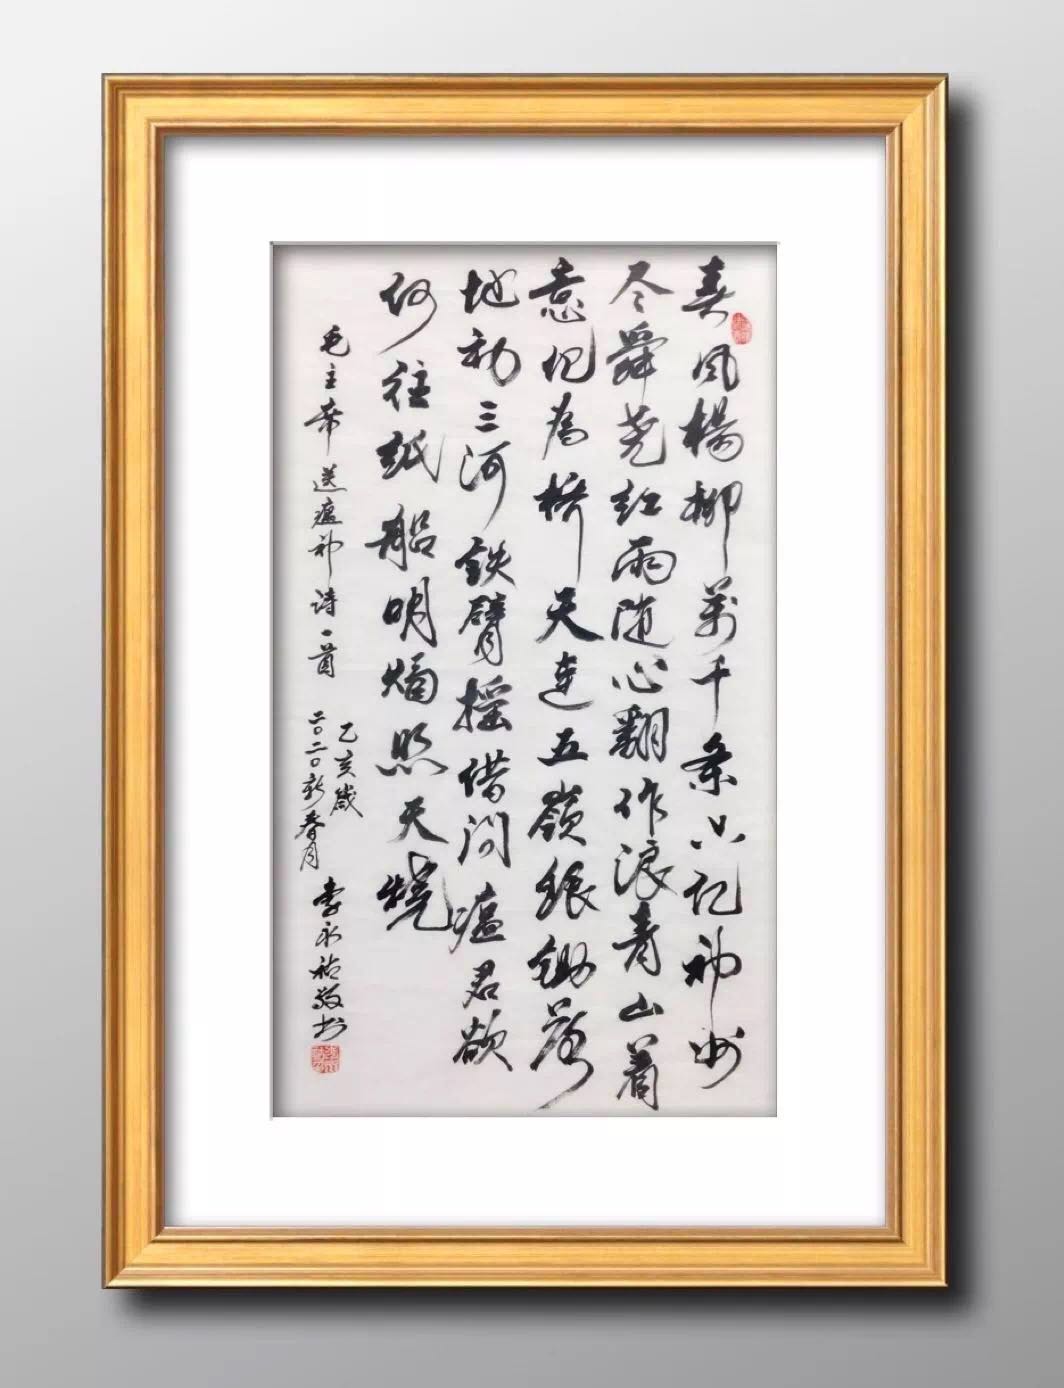 春风楊柳萬千条六亿神州
尽舜尧红雨随心翻作浪青山着
意化為桥天連五嶺銀鋤落
地动三河鉄臂摇借问瘟君欲
何往纸船明烛照天烧
毛主席送瘟神诗一首
乙亥歲
二〇二〇新春月
李永祜敬书